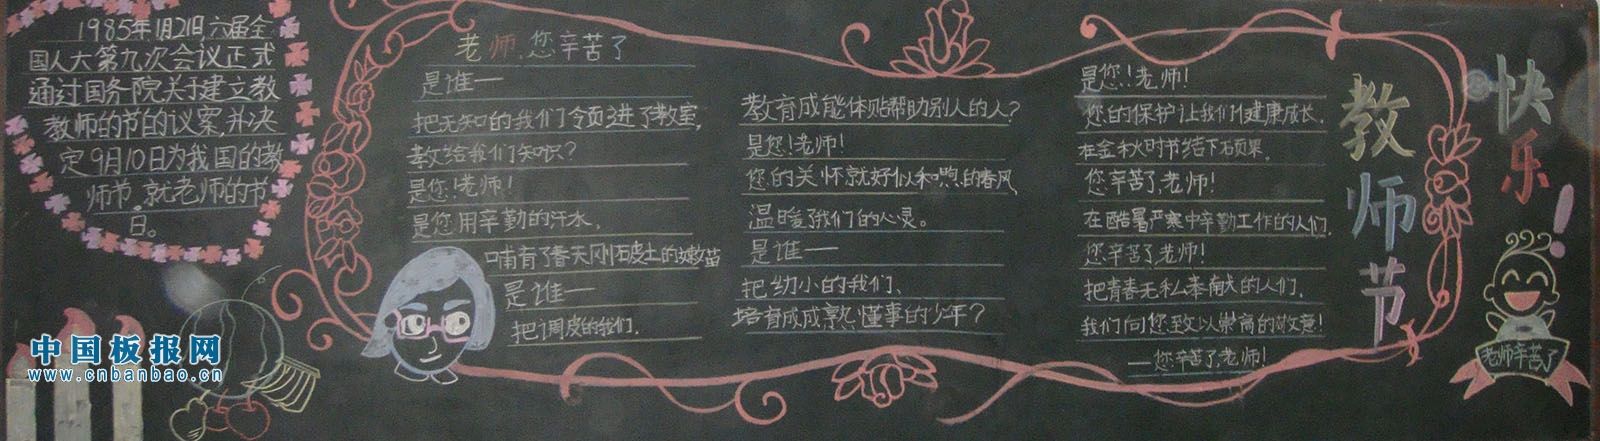 1985年1月21日六届全
国人大第九次会议正式
通过国务院关于建立教
教师的节的议案,并决
定9月10日为我国的教
师节。就老师的节
日。
老师,您辛苦了
是谁一
把无知的我们令页进了教室,
教给我们知识?
是您!老师!
是您用辛勤的汗水,
哺育了春天刚破土的嫩苗
是谁一
把调皮的我们.
教育成能体贴帮助别人的人?
是您!老师!
您的关怀就好似和煦的春风,
温暖了我们的心灵。
是谁一
把幼小的我们、
培育成成熟懂事的少年?
是您!老师!
您的保护让我们健康成长,
在金秋时节结下硕果。
您辛苦了,老师!
在酷暑严寒中辛勤工作的人们,
您辛苦了,老师!
把青春无私奉献的人们,
我们向您致以崇高的敬意!
—您辛苦了老师!
教师节
快乐!
老师辛苦了
中国板报网
www.cnbanbao.cn